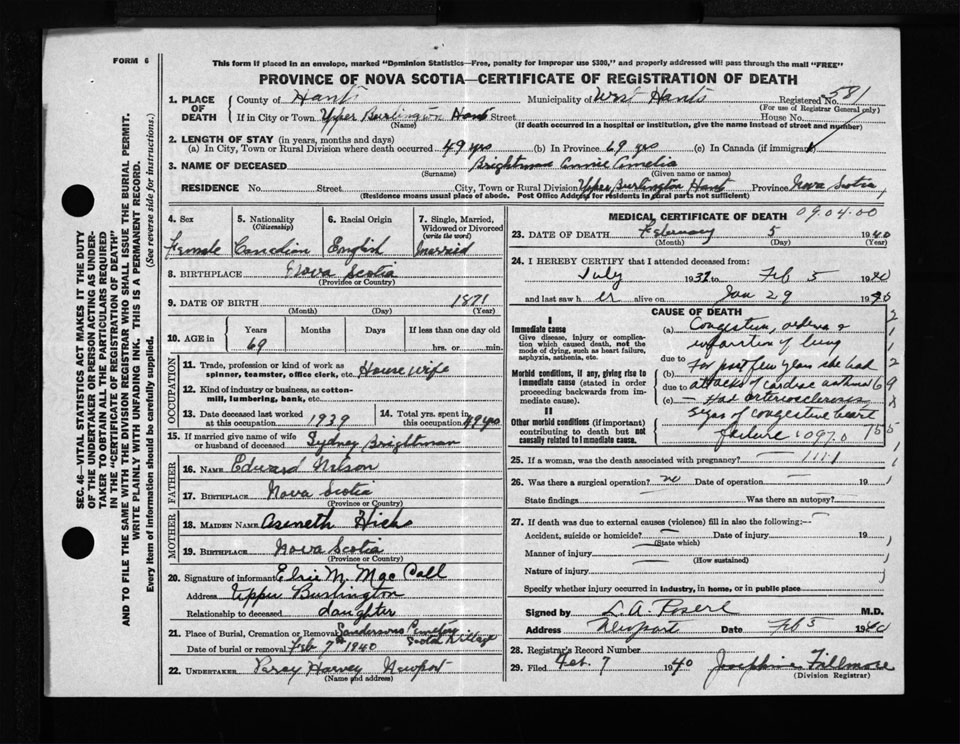 FORM 6
This form if placed in an envelope, marked "Dominion Statistics—Free, penalty for improper use $300," and properly addressed will pass through the mail "FREE"
PROVINCE OF NOVA SCOTIA—CERTIFICATE OF REGISTRATION OF DEATH
SEC. 46—VITAL STATISTICS ACT MAKES IT THE DUTY
OF THE UNDERTAKER OR PERSON ACTING AS UNDER-
TAKER TO OBTAIN ALL THE PARTICULARS REQUIRED
IN THE "CERTIFICATE OF REGISTRATION OF DEATH"
AND TO FILE THE SAME WITH THE DIVISION REGISTRAR WHO SHALL ISSUE THE BURIAL PERMIT.
WRITE PLAINLY WITH UNFADING INK. THIS IS A PERMANENT RECORD.
Every item of information should be carefully supplied. (See reverse side for instructions.)
1. PLACE OF DEATH County of Hants Municipality of West Hants Registered No. 581
(For use of Registrar General only)
If in City or Town Upper Burlington Hants Street House No.
(Name) (If death occurred in a hospital or institution, give the name instead of street and number)
2. LENGTH OF STAY (in years, months and days)
(a) In City, Town or Rural Division where death occurred 49 yrs (b) In Province 69 yrs (c) In Canada (if immigrant)
3. NAME OF DECEASED Brightman Annie Amelia
(Surname) (Given name or names)
RESIDENCE No. Street City, Town or Rural Division Upper Burlington Hants Province Nova Scotia
(Residence means usual place of abode. Post Office Address for residents in rural parts not sufficient)
4. Sex Female
5. Nationality (Citizenship) Canadian
6. Racial Origin English
7. Single, Married, Widowed or Divorced (write the word) Married
8. BIRTHPLACE Nova Scotia
(Province or Country)
9. DATE OF BIRTH 1871
(Month) (Day) (Year)
10. AGE in Years Months Days If less than one day old
69 hrs. or min.
OCCUPATION
11. Trade, profession or kind of work as spinner, teamster, office clerk, etc. House wife
12. Kind of industry or business, as cotton-mill, lumbering, bank, etc.
13. Date deceased last worked at this occupation 1939
14. Total yrs. spent in this occupation 49 yrs
15. If married give name of wife or husband of deceased Sydney Brightman
FATHER
16. NAME Edward Nelson
17. BIRTHPLACE Nova Scotia
(Province or Country)
MOTHER
18. MAIDEN NAME Aseneth Hicks
19. BIRTHPLACE Nova Scotia
(Province or Country)
20. Signature of informant Elsie M. Mac Call
Address Upper Burlington
Relationship to deceased daughter
21. Place of Burial, Cremation or Removal Sandersons Cemetery Scotch Village
Date of burial or removal Feb 7th 1940
22. UNDERTAKER Percy Harvey Newport
(Name and address)
MEDICAL CERTIFICATE OF DEATH 09.04.00
23. DATE OF DEATH February 5 1940
(Month) (Day)
24. I HEREBY CERTIFY that I attended deceased from:
July 1932 to Feb 5 1940
and last saw her alive on Jan 29 1940
CAUSE OF DEATH
I
Immediate cause
Give disease, injury or complication which caused death, not the mode of dying, such as heart failure, asphyxia, asthenia, etc.
(a) Congestion, oedema & infarction of lung
due to
Morbid conditions, if any, giving rise to immediate cause (stated in order proceeding backwards from immediate cause).
(b) For past few years she had
due to attacks of cardiac asthma
(c) - Had arteriosclerosis
II
Other morbid conditions (if important) contributing to death but not causally related to immediate cause.
Signs of congestive heart
failure 097.0
25. If a woman, was the death associated with pregnancy? 1111
26. Was there a surgical operation? no Date of operation 19
State findings Was there an autopsy?
27. If death was due to external causes (violence) fill in also the following:—
Accident, suicide or homicide? Date of injury 19
(State which)
Manner of injury
(How sustained)
Nature of injury
Specify whether injury occurred in industry, in home, or in public place
Signed by L. A. M.D.
Address Newport Date Feb 5 1940
28. Registrar's Record Number
29. Filed Feb. 7 1940 Josephine Fillmore
(Division Registrar)